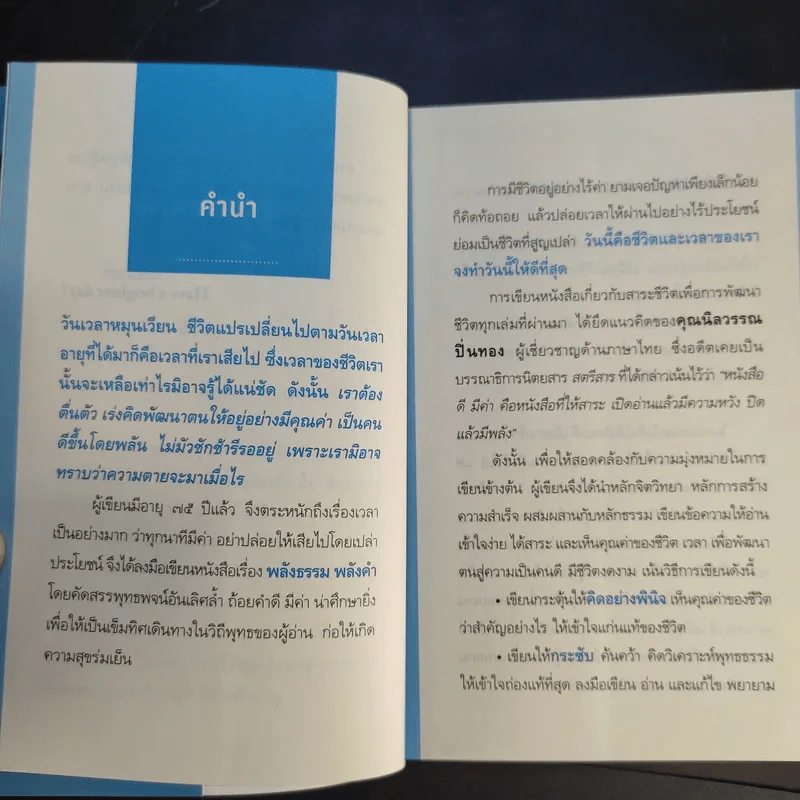 คำนำ
วันเวลาหมุนเวียน ชีวิตแปรเปลี่ยนไปตามวันเวลา
อายุที่ได้มาก็คือเวลาที่เราเสียไป ซึ่งเวลาของชีวิตเรา
นั้นจะเหลือเท่าไรมิอาจรู้ได้แน่ชัด ดังนั้น เราต้อง
ตื่นตัว เร่งคิดพัฒนาตนให้อยู่อย่างมีคุณค่า เป็นคน
ดีขึ้นโดยพลัน ไม่มัวชักช้ารีรออยู่ เพราะเรามิอาจ
ทราบว่าความตายจะมาเมื่อไร
ผู้เขียนมีอายุ ๗๕ ปีแล้ว จึงตระหนักถึงเรื่องเวลา
เป็นอย่างมาก ว่าทุกนาทีมีค่า อย่าปล่อยให้เสียไปโดยเปล่า
ประโยชน์ จึงได้ลงมือเขียนหนังสือเรื่อง พลังธรรม พลังคำ
โดยคัดสรรพุทธพจน์อันเลิศล้ำ ถ้อยคำดี มีค่า น่าศึกษายิ่ง
เพื่อให้เป็นเข็มทิศเดินทางในวิถีพุทธของผู้อ่าน ก่อให้เกิด
ความสุขร่มเย็น
การมีชีวิตอยู่อย่างไร้ค่า ยามเจอปัญหาเพียงเล็กน้อย
ก็คิดท้อถอย แล้วปล่อยเวลาให้ผ่านไปอย่างไร้ประโยชน์
ย่อมเป็นชีวิตที่สูญเปล่า วันนี้คือชีวิตและเวลาของเรา
จงทำวันนี้ให้ดีที่สุด
การเขียนหนังสือเกี่ยวกับสาระชีวิตเพื่อการพัฒนา
ชีวิตทุกเล่มที่ผ่านมา ได้ยึดแนวคิดของคุณนิลวรรณ
ปิ่นทอง ผู้เชี่ยวชาญด้านภาษาไทย ซึ่งอดีตเคยเป็น
บรรณาธิการนิตยสาร สตรีสาร ที่ได้กล่าวเน้นไว้ว่า "หนังสือ
ดี มีค่า คือหนังสือที่ให้สาระ เปิดอ่านแล้วมีความหวัง ปิด
แล้วมีพลัง"
ดังนั้น เพื่อให้สอดคล้องกับความมุ่งหมายในการ
เขียนข้างต้น ผู้เขียนจึงได้นำหลักจิตวิทยา หลักการสร้าง
ความสำเร็จ ผสมผสานกับหลักธรรม เขียนข้อความให้อ่าน
เข้าใจง่าย ได้สาระ และเห็นคุณค่าของชีวิต เวลา เพื่อพัฒนา
ตนสู่ความเป็นคนดี มีชีวิตงดงาม เน้นวิธีการเขียนดังนี้
• เขียนกระตุ้นให้คิดอย่างพินิจ เห็นคุณค่าของชีวิต
ว่าสำคัญอย่างไร ให้เข้าใจแก่นแท้ของชีวิต
• เขียนให้กระชับ ค้นคว้า คิดวิเคราะห์พุทธธรรม
ให้เข้าใจถ่องแท้ที่สุด ลงมือเขียน อ่าน และแก้ไข พยายาม